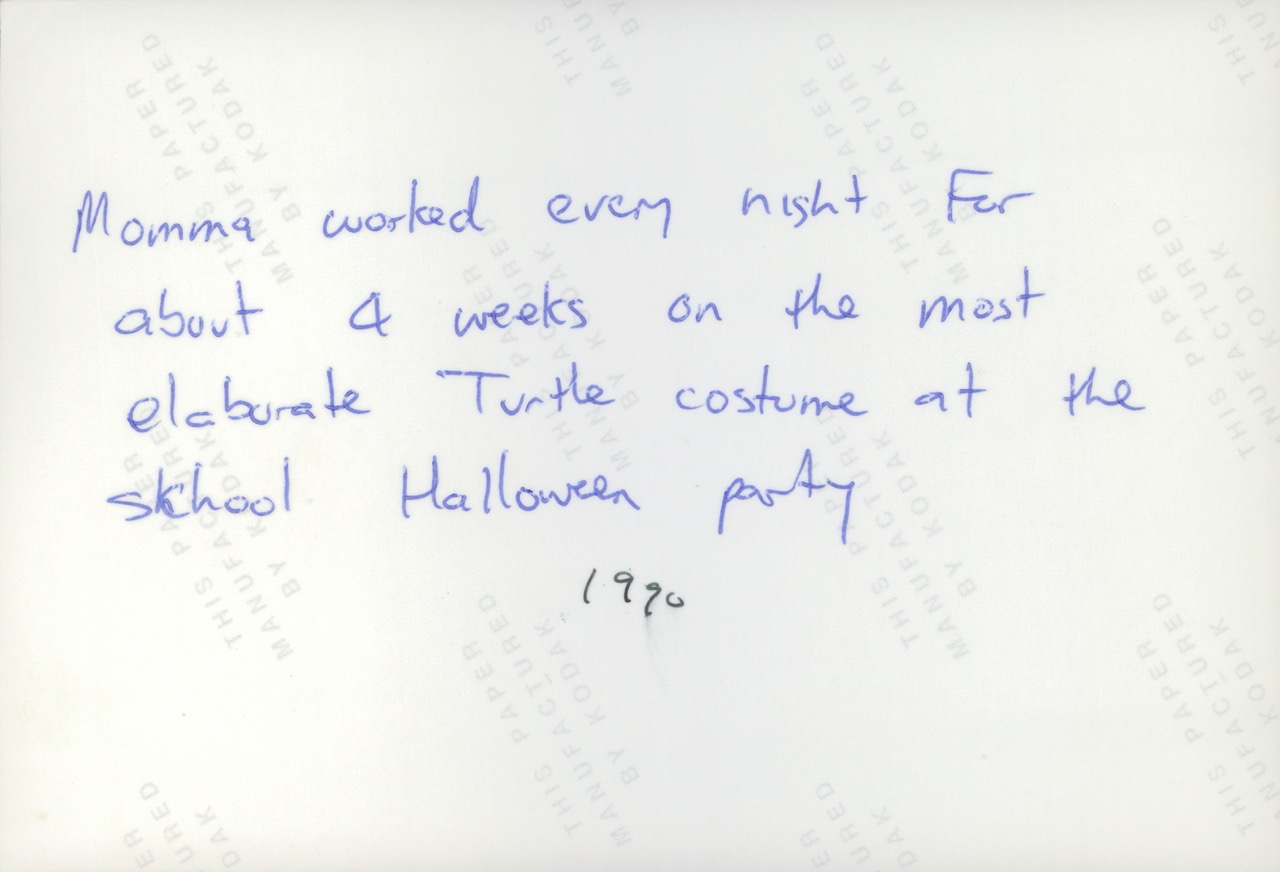 Momma worked every night For
about 4 weeks on the most
elaborate Turtle costume at the
skhool Halloween party
1990
THIS PAPER
MANUFACTURED
BY KODAK